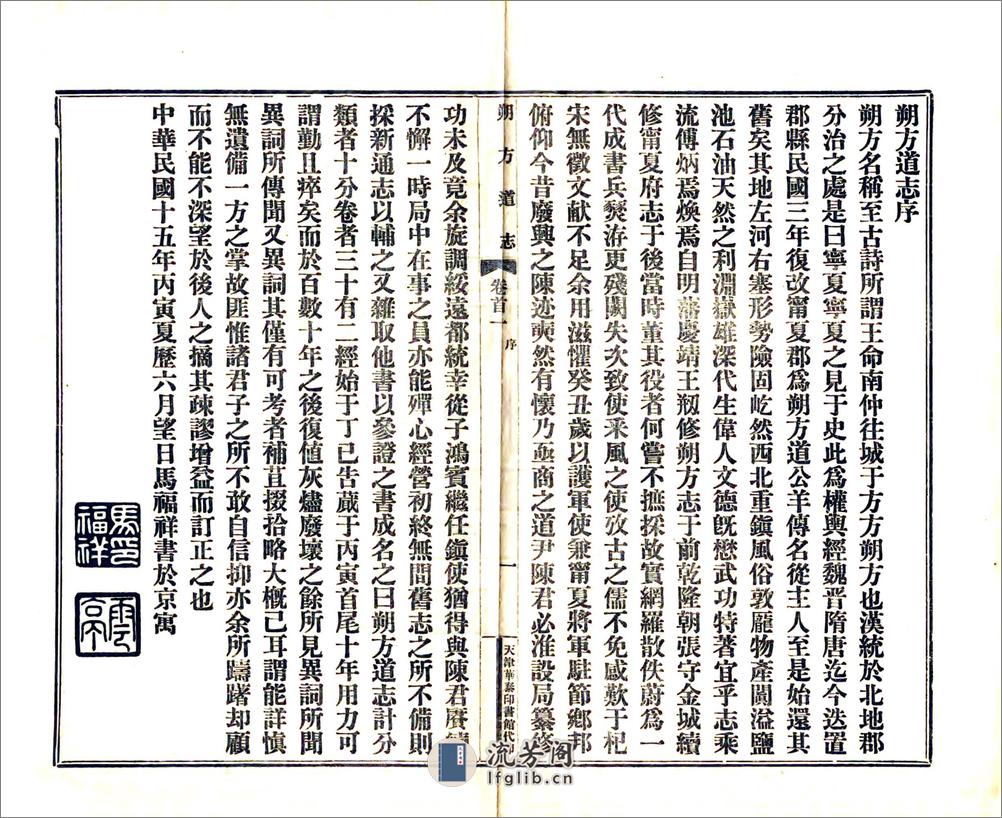 朔方道志序
朔方名稱至古詩所謂王命南仲往城于方方朔方也漢統於北地郡
分治之處是曰寧夏寧夏之見于史此爲權輿經魏晉隋唐迄今迭置
郡縣民國三年復改甯夏郡爲朔方道公羊傳名從主人至是始還其
舊矣其地左河右塞形勢險固屹然西北重鎮風俗敦厖物產闐溢鹽
池石油天然之利淵嶽雄深代生偉人文德旣懋武功特著宜乎志乘
流傳炳焉煥焉自明藩慶靖王剏修朔方志于前乾隆朝張守金城續
修甯夏府志于後當時董其役者何嘗不摭採故實網羅散佚蔚爲一
代成書兵燹洊更殘闕失次致使釆風之使攷古之儒不免感歎于杞
宋無徵文献不足余用滋懼癸丑歲以護軍使兼甯夏將軍駐節鄉邦
俯仰今昔廢興之陳迹奭然有懷乃亟商之道尹陳君必淮設局纂修
朔方道志 卷首一 序 一 天津華泰印書館代印
功未及竟余旋調綏遠都統幸從子鴻賓繼任鎮使猶得與陳君賡續
不懈一時局中在事之員亦能殫心經營初終無間舊志之所不備則
採新通志以輔之又雜取他書以參證之書成名之曰朔方道志計分
類者十分卷者三十有二經始于丁巳告蕆于丙寅首尾十年用力可
謂勤且瘁矣而於百數十年之後復值灰燼廢壞之餘所見異詞所聞
異詞所傳聞又異詞其僅有可考者補苴掇拾略大概已耳謂能詳慎
無遺備一方之掌故匪惟諸君子之所不敢自信抑亦余所躊躇却顧
而不能不深望於後人之摘其疎謬增益而訂正之也
中華民國十五年丙寅夏歷六月望日馬福祥書於京寓
馬福祥印
雲亭
流芳阁
lfglib.cn